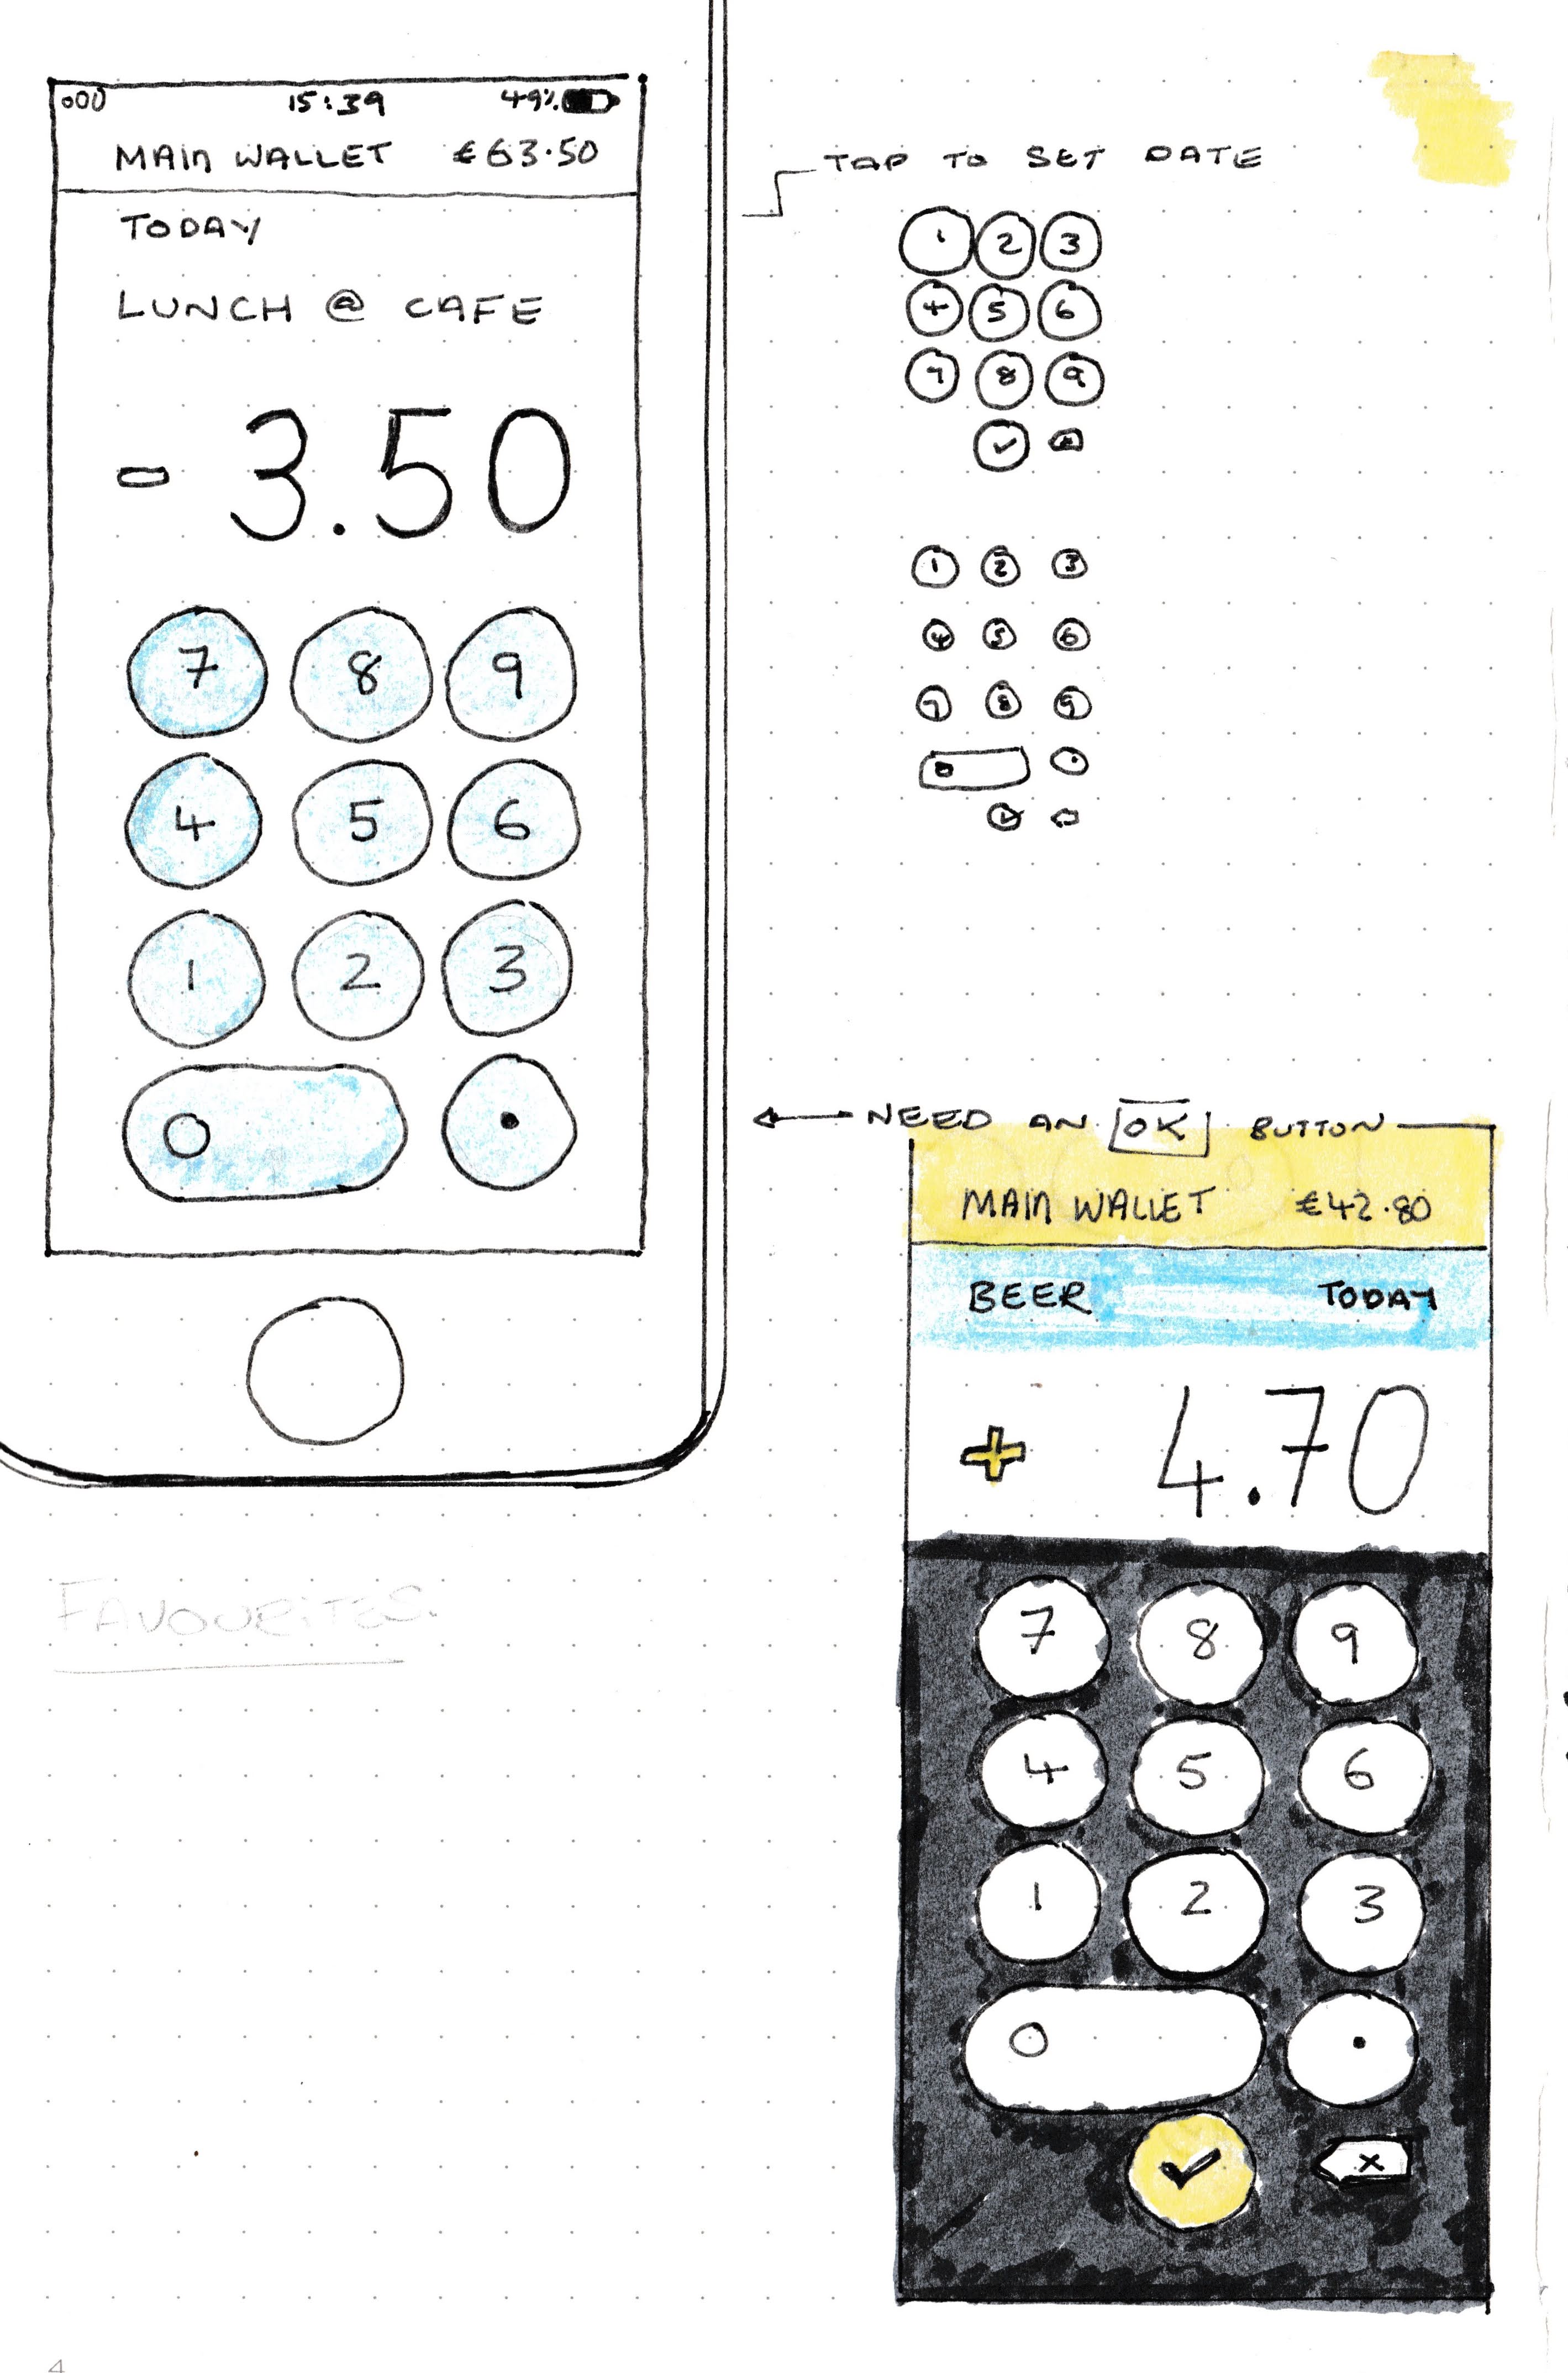 ooo 15:39 49%
MAIN WALLET €63.50
TODAY
LUNCH @ CAFE
- 3.50
7 8 9
4 5 6
1 2 3
0 .
TAP TO SET DATE
1 2 3
4 5 6
7 8 9
✓ x
1 2 3
4 5 6
7 8 9
0 .
✓
← NEED AN OK BUTTON
MAIN WALLET €42.80
BEER TODAY
+ 4.70
7 8 9
4 5 6
1 2 3
0 .
✓ x
FAVOURITES.
4